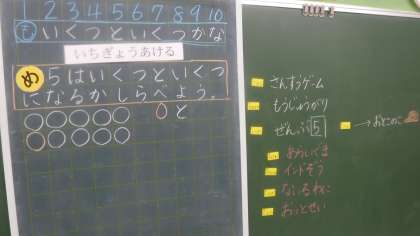 1 2 3 4 5 6 7 8 9 10
も いくつといくつかな
いちぎょうあける
め 5はいくつといくつ
になるかしらべよう。
0と
さんすうゲーム
もうじゅうがり
ぜんぶ5
→おとこのこ
あらいぐま
インドぞう
ないるわに
おっとせい